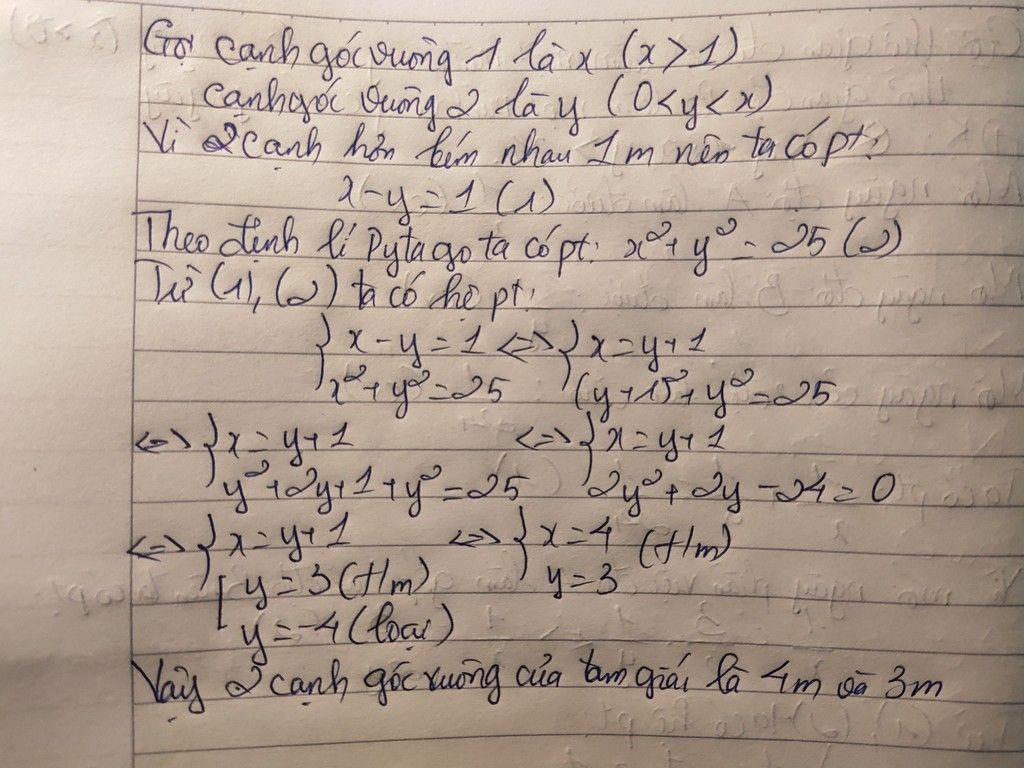 Gọi cạnh góc vuông 1 là x (x > 1)
cạnh góc vuông 2 là y (0 < y < x)
Vì 2 cạnh hơn kém nhau 1m nên ta có pt:
x - y = 1 (1)
Theo định lí Pytago ta có pt: x² + y² = 25 (2)
Từ (1), (2) ta có hệ pt:
{ x - y = 1 <=> { x = y + 1
x² + y² = 25 (y + 1)² + y² = 25
<=> { x = y + 1 <=> { x = y + 1
y² + 2y + 1 + y² = 25 2y² + 2y - 24 = 0
<=> { x = y + 1 <=> { x = 4 (t/m)
[ y = 3 (t/m) y = 3
y = -4 (loại)
Vậy 2 cạnh góc vuông của tam giái là 4m và 3m